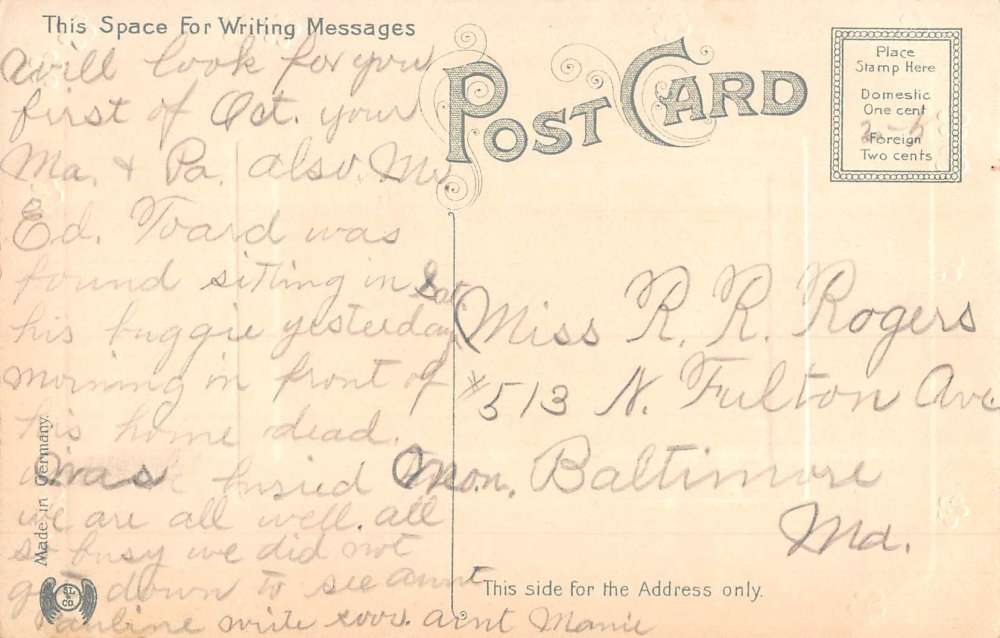 This Space For Writing Messages
POST CARD
Place
Stamp Here
Domestic
One cent
Foreign
Two cents
will look for you
first of Oct. your
Ma. & Pa. also. Mr.
Ed. Toard was
found sitting in
his buggie yesterday Sat.
morning in front of
his home dead.
was buried Mon.
we are all well. all
so busy we did not
get down to see aunt
Pauline write soon. aent Mamie
Miss R. R. Rogers
#513 N. Fulton Ave
Baltimore
Md.
This side for the Address only.
Made in Germany.
SL & CO.